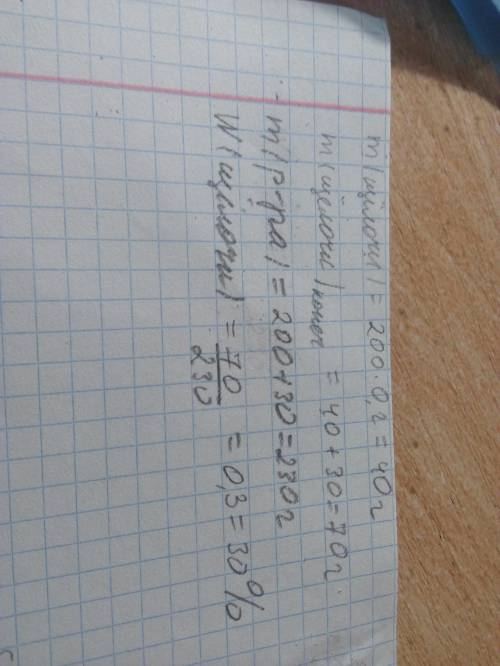 m(щёлочи) = 200·0,2 = 40г
m(щёлочи)конеч = 40+30=70г
m(р-ра) = 200+30=230г
W(щёлочи) = 70/230 = 0,3=30%